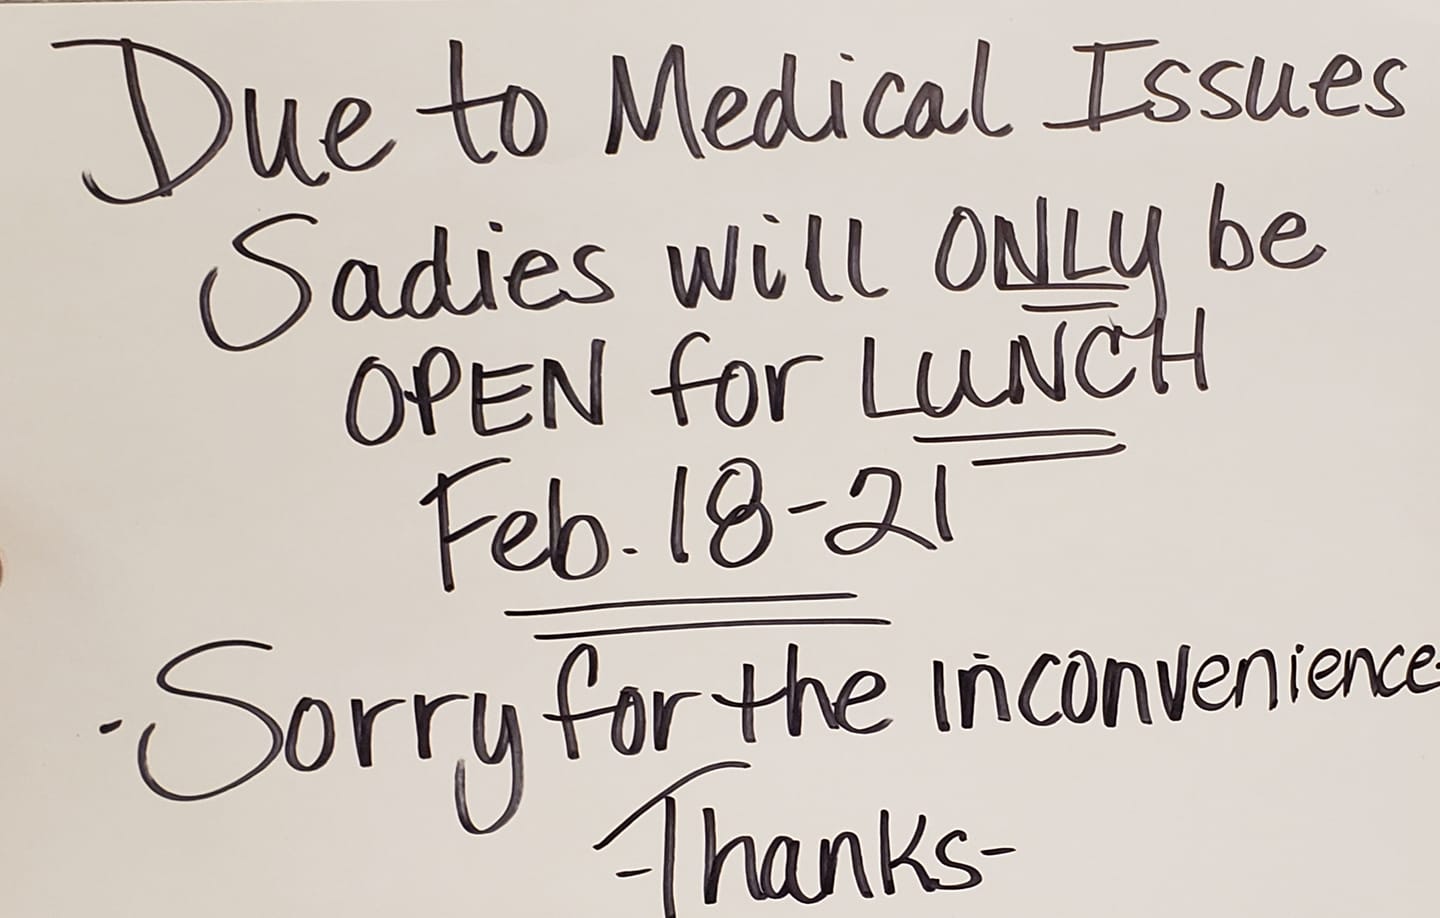 Due to Medical Issues
Sadies will ONLY be
OPEN for LUNCH
Feb. 18-21
-Sorry for the inconvenience-
-Thanks-